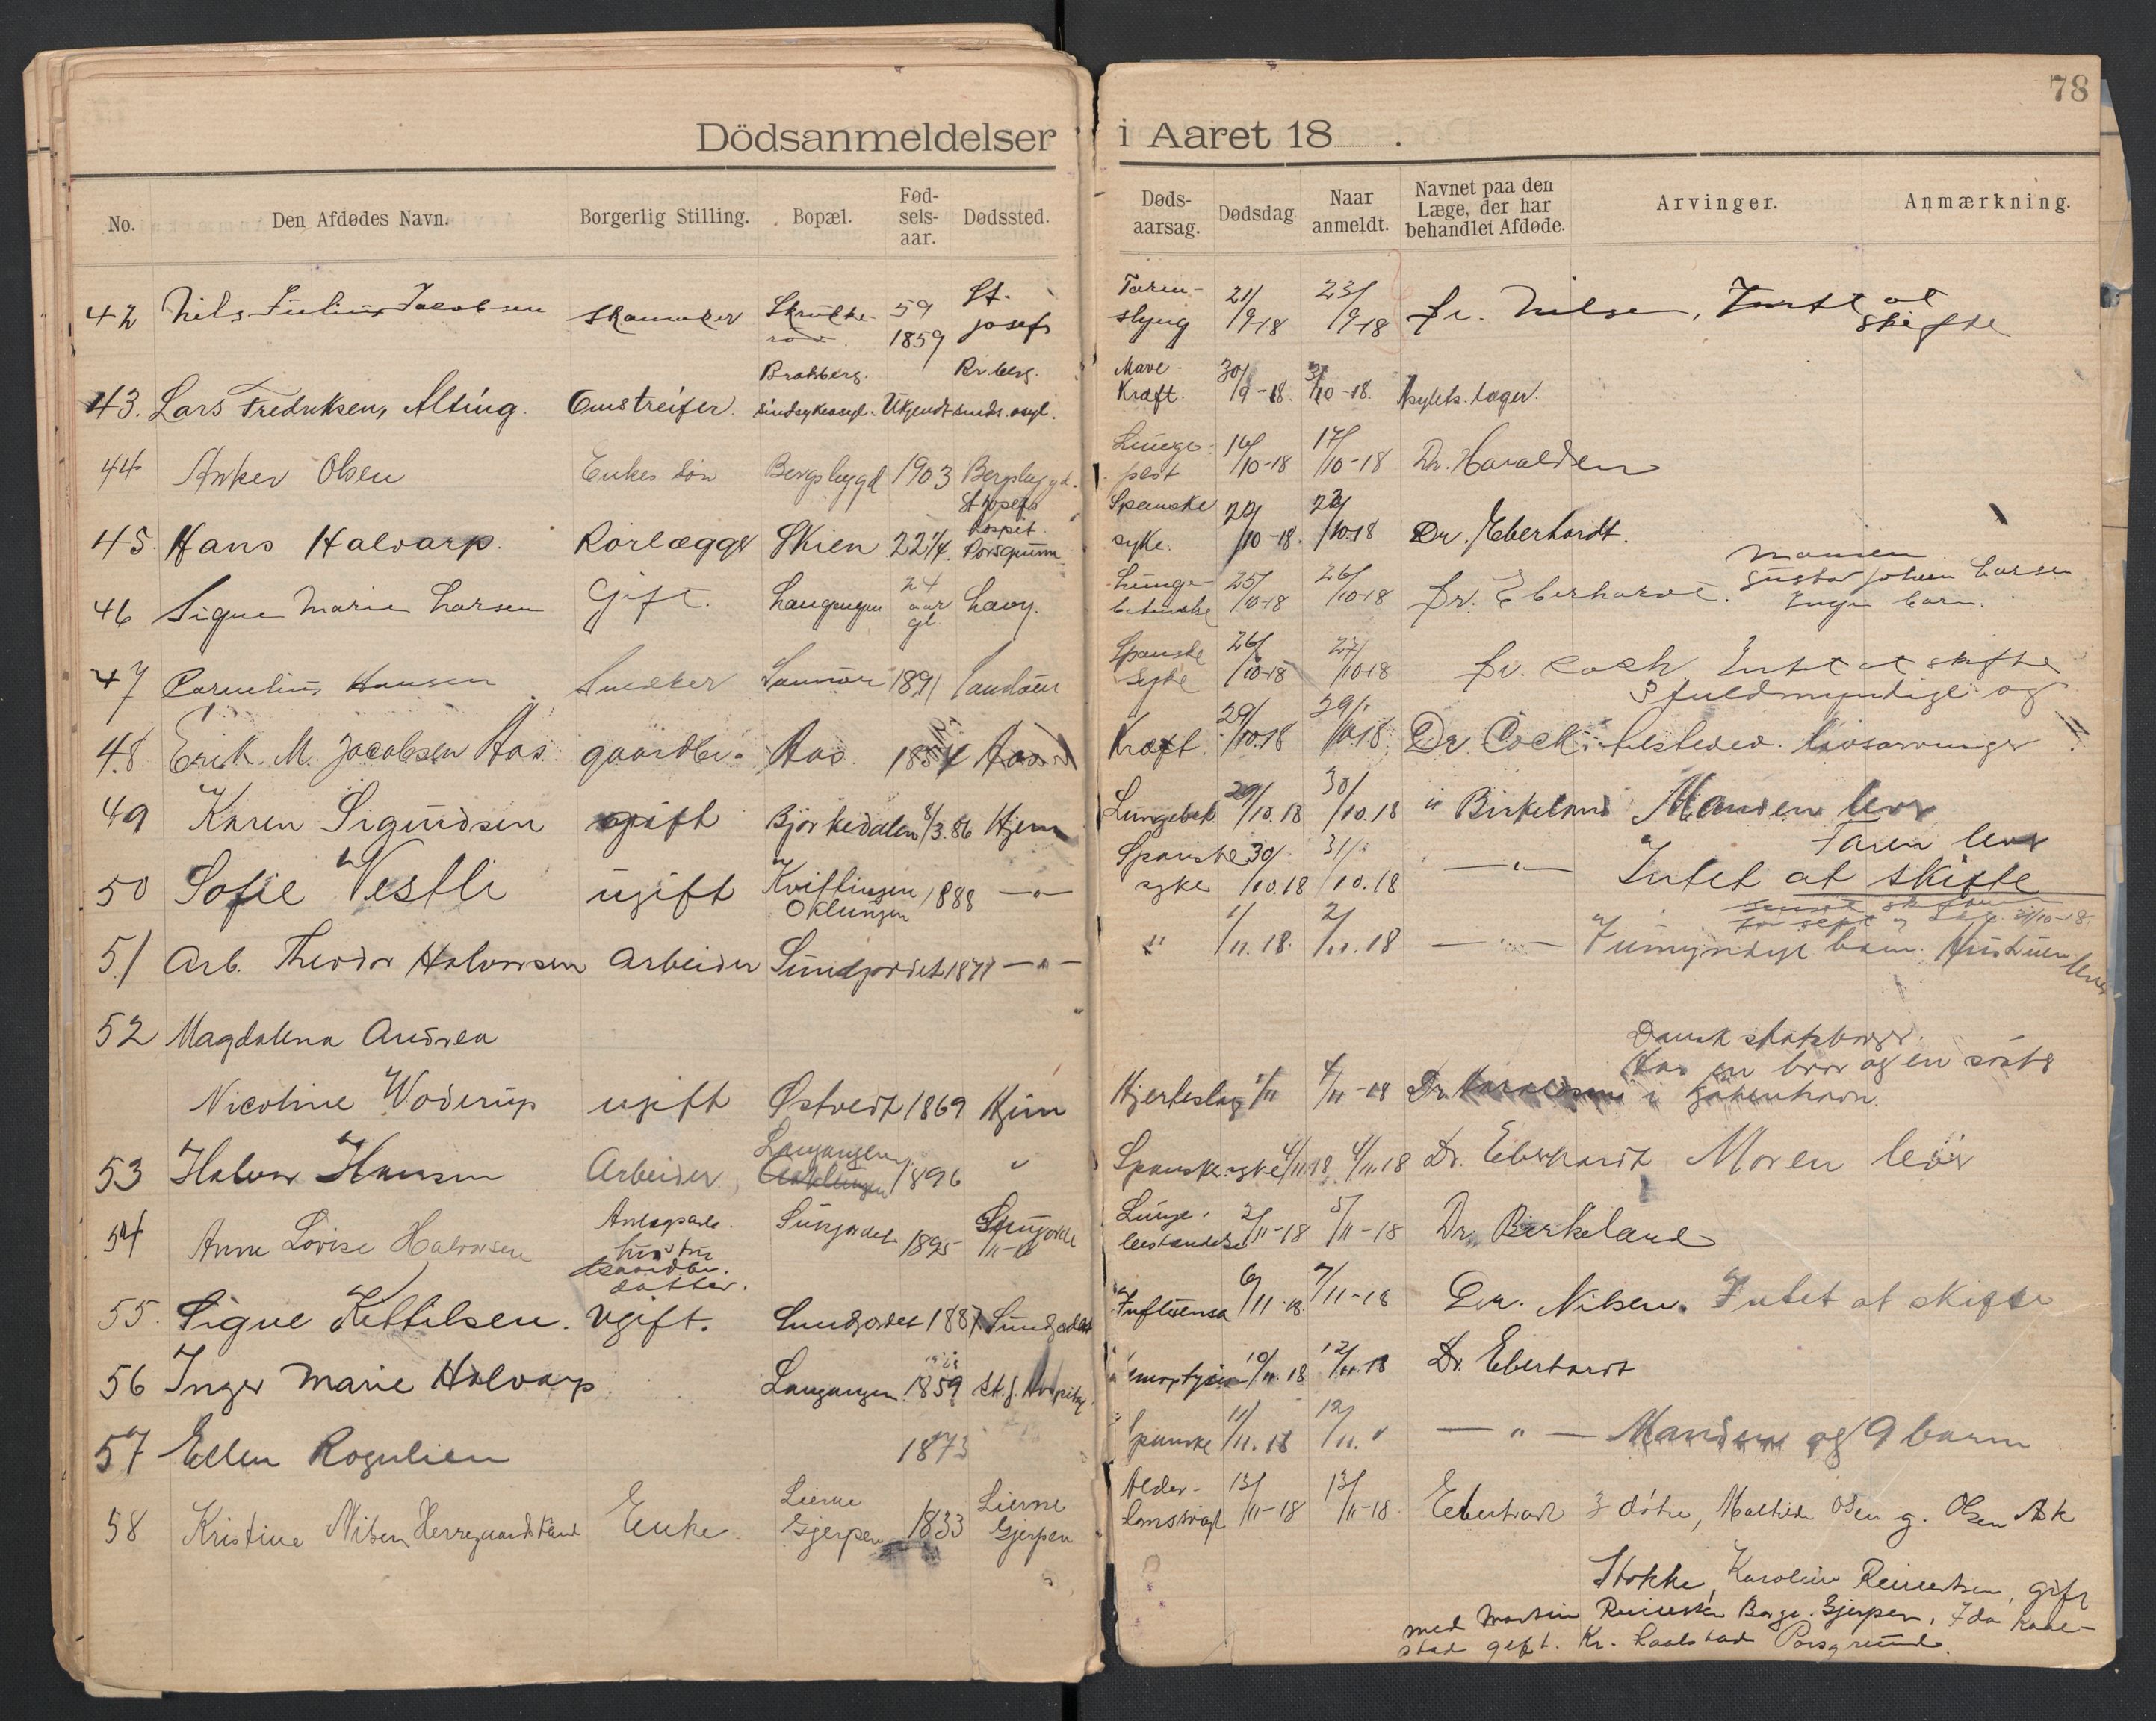 78
Dödsanmeldelser i Aaret 18 .
No. Den Afdødes Navn. Borgerlig Stilling. Bopæl. Fød-sels-aar. Dødssted. Døds-aarsag. Dødsdag Naar anmeldt. Navnet paa den Læge, der har behandlet Afdøde. Arvinger. Anmærkning.
42 Nils Julius Jacobsen Skomaker 59 1859 St. Josefs Tarm-slyng 21/9-18 23/9-18 Dr. Nilsen, Intet at skifte
43. Lars Fredriksen, Alting. Omstreifer. Bratsberg. sindsykeasyl. Ukjendt Br.berg. sinds.asyl. Mave-Kræft. 30/9-18. 3/10-18. Asylets læger.
44 Anker Olsen Enkes søn Bergsbygd 1903 Bergsbygd. Lunge-pest 16/10-18 17/10-18 Dr. Haraldsen
45 Hans Halvarp. Rørlægger Skien 22 1/4. St Josefs hospit. Porsgrunn Spanske syke. 20/10-18. 22/10-18 Dr. Eberhardt.
46 Signe Marie Larsen Gift. Langangen 24 aar gl. Lang. Lunge-betændelse 25/10-18 26/10-18 Dr. Eberhardt. Manden Gustav Johan Larsen Ingen barn.
47 Cornelius Hansen Snedker 1891 Spanske Syke 26/10-18 27/10-18 Dr. Cock Intet at skifte
48. Erik. M. Jacobsen Aas. gaardbr. Aas. 1834 Aas Kræft. 29/10.18 29/10.18. Dr. Cock i Helsteved. 3 fuldmyndige og livsarvinger
49 Karen Sigurdsen gift Björkedalen 8/3.86 Hjem Lungebet. 29/10.18 30/10.18 " Birkeland Manden lever
50 Sofie Vestli ugift Kvittingen Oklungen 1888 —"— Spanske syke 30/10.18 31/10.18 —"— Faren lever Intet at skifte
51 Arb. Theodor Halvorsen Arbeider Sundjordet 1871 —"— " 1/11.18. 2/11.18 —"— 7 umyndige barn. Hustruen lever
52 Magdalena Andrea
Nicoline Woderup ugift Østvedt 1869 Hjem Hjerteslag 4/11-18 Dr. Haraldsen Dansk statsborger. Har en bror og en søster i Kjøbenhavn.
53 Halvor Hansen Arbeider Langangen 1896 " Spanske syke 4/11.18. 4/11.18 Dr. Eberhardt Moren lever
54 Anne Lovise Halvorsen Anlægsarb. hustru Sunjordet 1895 Sunjordet Lunge-betændelse 2/11-18 5/11-18 Dr. Birkeland
55. Signe Kittilsen. Gaardbr. datter. Ugift. Sundjordet 1887 Sundjordet Influensa 6/11-18. 7/11-18 Dr. Nilsen. Intet at skifte
56 Inger Marie Halvarp Langangen 1859 St. J. Hospital 10/11.18 12/11.18 Dr. Eberhardt
57 Ellen Rognlien 1873 Spanske 11/11.18 12/11. " —"— Manden og 9 barn
58 Kristine Nilsen Enke Lierne Gjerpen 1833 Lierne Gjerpen Alder-domssvagh. 13/11-18 13/11-18. Eberhardt 3 døtre, Mathilde Olsen g. Olsen Ask
Stokke, Karoline Reinertsen, gift
med Martin Reinertsen Borge. Gjerpen, Ida Kaal-
stad gift. Kr. Kaalstad Porsgrund.